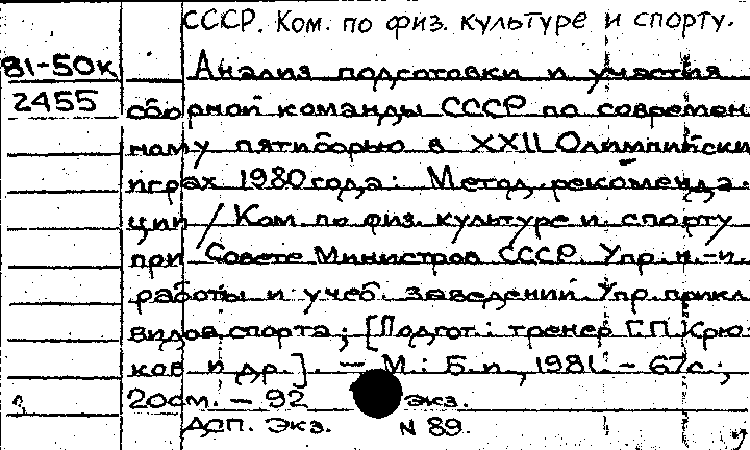 СССР. Ком. по физ. культуре и спорту.
81-50к Анализ подготовки и участия
2455 сборной команды СССР по современ
ному пятиборью в XXII Олимпийски
играх 1980 года: Метод. рекоменда-
ции / Ком. по физ. культуре и спорту
при Совете Министров СССР. Упр. н.-и.
работы и учеб. заведений. Упр. прикл.
видов спорта; [Подгот.: тренер Г.П. Крю-
ков и др.]. — М.: Б. и., 1981. – 67с.;
20см. – 92 экз.
Доп. экз. N 89.